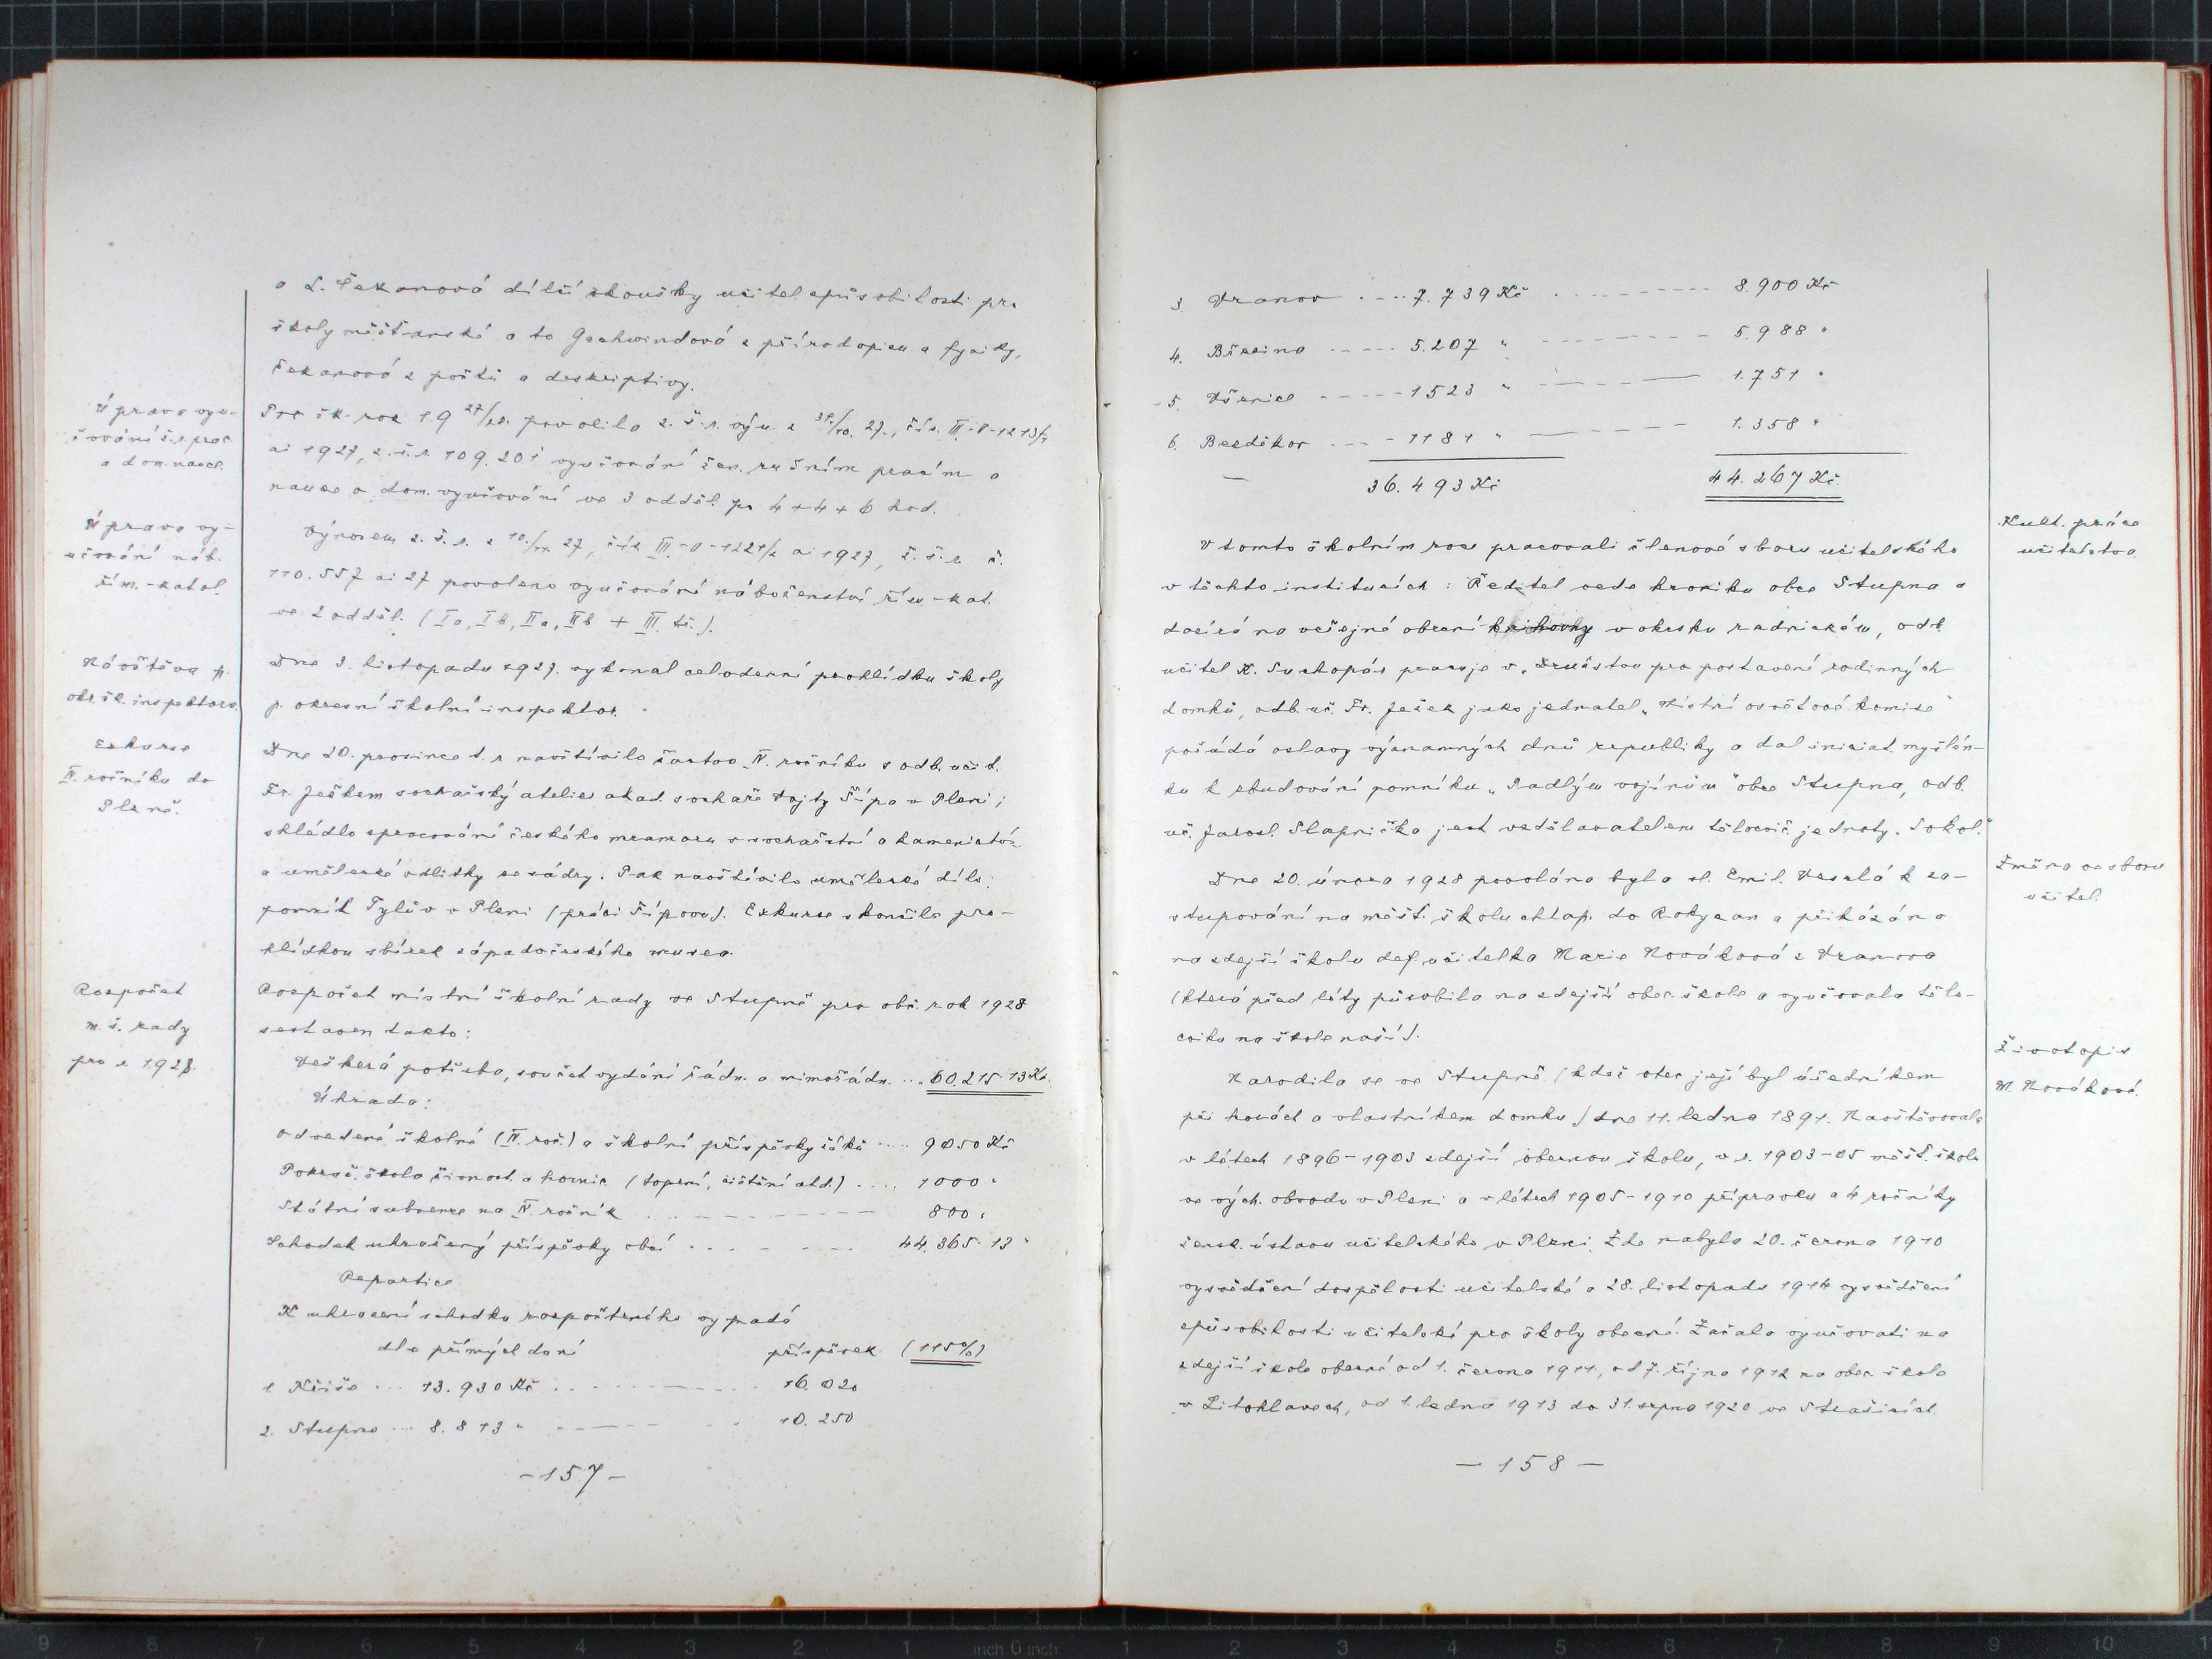 a L. Čekanová dílčí zkoušky učitel. způsobilosti pro
školy měšťanské a to Gschwindová z přírodopisu a fysiky,
Čekanová z počtů a deskriptivy.
Úprava vyu-
čování ž. r. prac.
a dom. nauce.
Pro šk. rok 19 27/28. povolila z. š. r. výn. z 31./10. 27., čís. III.-
ai 1927, z. š. r. 109.201 vyučování žen. ručním pracím a
nauce o dom. vyučování ve 3 odděl. po 4 + 4 + 6 hod.
Úprava vy-
učování náb.
řím.-katol.
Výnosem z. š. r. z 10./11. 27, čís. III.-0-1221/2 ai 1927, z. š. r. č.
110.557 ai 27 povoleno vyučování náboženství řím-kat.
ve 2 odděl. (Ia, Ib, IIa, IIb + III. tř.).
Návštěva p.
okr. šk. inspektora.
Dne 3. listopadu 1927. vykonal celodenní prohlídku školy
p. okresní školní inspektor.
Exkurse
IV. ročníku do
Plzně.
Dne 20. prosince t. r. navštívilo žactvo IV. ročníku s odb. učit.
Fr. Ješkem sochařský atelier akad. sochaře Vojty Šípa v Plzni;
shlédlo zpracování českého mramoru v sochařství a kamenictví
a umělecké odlitky ze sádry. Pak navštívilo umělecké dílo:
pomník Tylův v Plzni (práci Šípovu). Exkurse skončila pro-
hlídkou sbírek západočeského musea.
Rozpočet
m. š. rady
pro r. 1928.
Rozpočet místní školní rady ve Stupně pro obč. rok 1928
sestaven takto:
Veškerá potřeba, součet vydání řádn. a mimořádn. ... 60.215·13 Kč.
Úhrada:
Odvedené školné (IV. roč.) a školní příspěvky žáků .... 9050 Kč
Pokrač. škola živnost. a hornic. (topení, čištění atd.) .... 1000 "
Státní subvence na IV. ročník . - - - - - 800 "
Schodek uhražený příspěvky obcí . . - - - - 44.365·13 "
Repartice
K uhrazení schodku rozpočteného vypadá
dle přímých daní příspěvek (115%)
1. Kříše ... 13.930 Kč . . - - - - 16.020
2. Stupno ... 8.813 " - - - - - 10.250
- 157 -
3. Vranov . - - . 7.739 Kč . - - - - - 8.900 Kč
4. Březina - - - - 5.207 " - - - - - - 5.988 "
5. Všenice - - - - - 1523 " - - - - 1.751 "
6. Bezděkov - - - - 1181 " - - - - 1.358 "
36.493 Kč 44.267 Kč.
Kult. práce
učitelstva.
V tomto školním roce pracovali členové sboru učitelského
v těchto institucích: Ředitel vede kroniku obce Stupna a
dozírá na veřejné obecní knihovny v okrsku radnickém, odb.
učitel K. Suchopár pracuje v „Družstvu pro postavení rodinných
domků, odb. uč. Fr. Ješek jako jednatel „Místní osvětové komise"
pořádá oslavy významných dnů republiky a dal iniciat. myšlén-
ku k zbudování pomníku „Padlým vojínům" obce Stupna, odb.
uč. Jarosl. Slapnička jest vzdělavatelem tělocvič. jednoty „Sokol."
Změna ve sboru
učitel.
Dne 20. února 1928 povolána byla sl. Emil. Veselá k za-
stupování na měšť. školu chlap. do Rokycan a přikázána
na zdejší školu def. učitelka Marie Nováková z Vranova
(která před léty působila na zdejší obec. škole a vyučovala tělo-
cviku na škole naší).
Životopis
M. Novákové.
Narodila se ve Stupně (kdež otec její byl úředníkem
při hutích a vlastníkem domku) dne 11. ledna 1891. Navštěvovala
v létech 1896-1903 zdejší obecnou školu, v r. 1903-05 měšť. školu
ve vých. obvodu v Plzni a v létech 1905-1910 přípravku a 4 ročníky
žensk. ústavu učitelského v Plzni. Zde nabyla 20. června 1910
vysvědčení dospělosti učitelské a 28. listopadu 1914 vysvědčení
způsobilosti učitelské pro školy obecné. Začala vyučovati na
zdejší škole obecné od 1. června 1911, od 7. října 1912 na obec. škole
v Litohlavech, od 1. ledna 1913 do 31. srpna 1920 ve Strašicích.
- 158 -
9 8 7 6 5 4 3 2 1 inch 0 inch 1 2 3 4 5 6 7 8 9 10